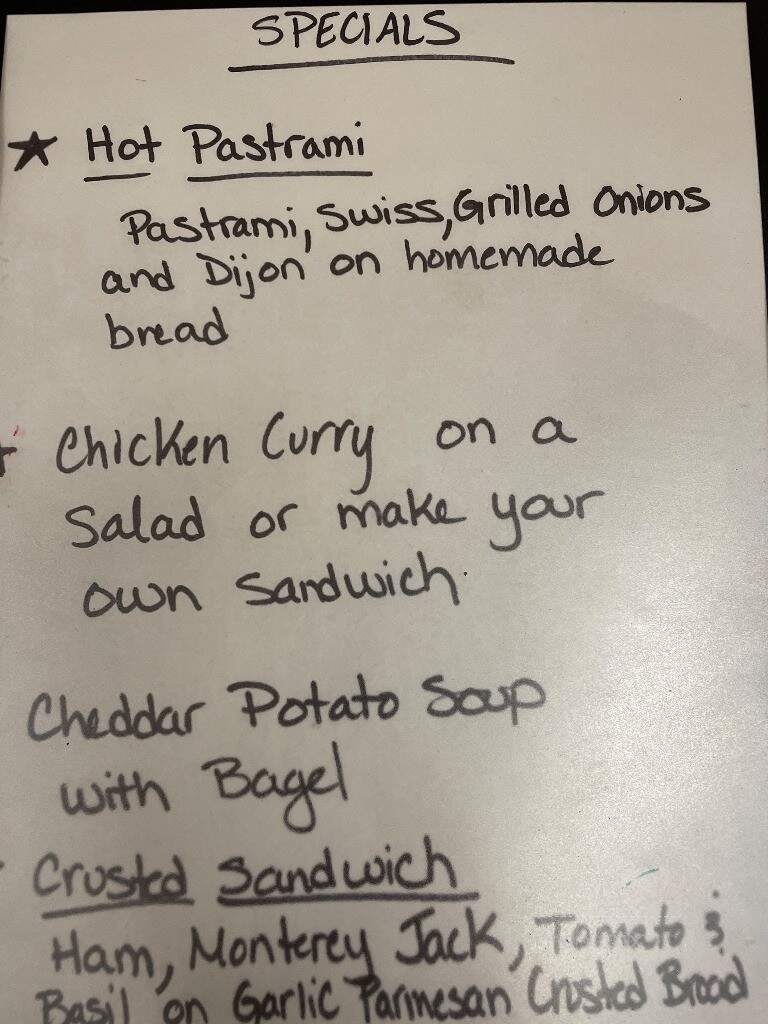 SPECIALS
★ Hot Pastrami
Pastrami, Swiss, Grilled Onions
and Dijon on homemade
bread
Chicken Curry on a
Salad or make your
own Sandwich.
Cheddar Potato Soup
with Bagel
Crusted Sandwich
Ham, Monterey Jack, Tomato &
Basil on Garlic Parmesan Crusted Bread